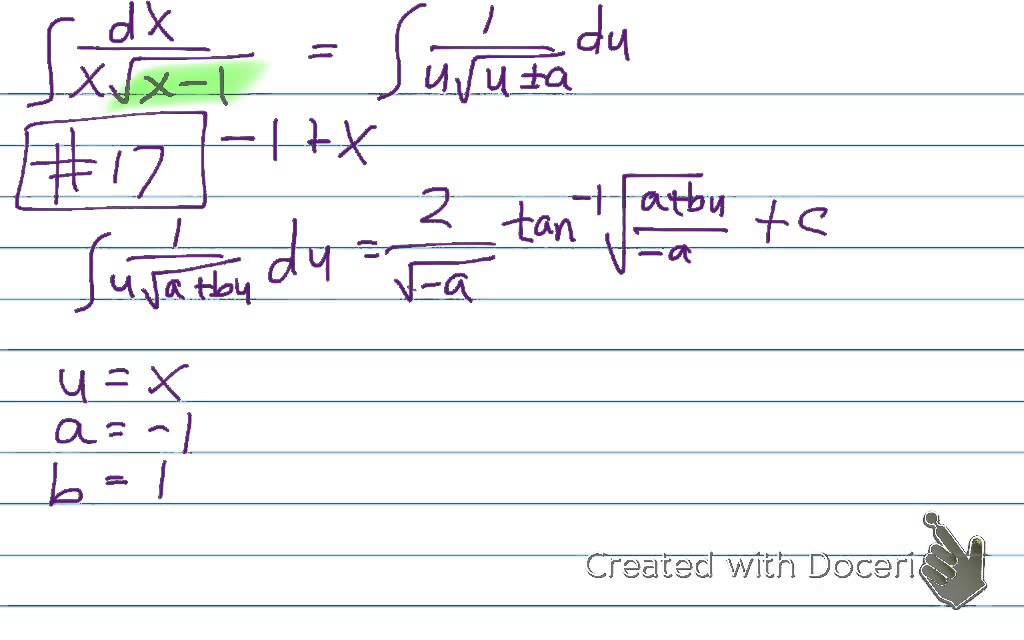 ∫ dx / x√(x-1) = ∫ 1 / u√(u±a) du
#17 -1+x
∫ 1 / u√(a+bu) du = 2/√(-a) tan⁻¹ √((a+bu)/(-a)) + C
u = x
a = -1
b = 1
Created with Doceri